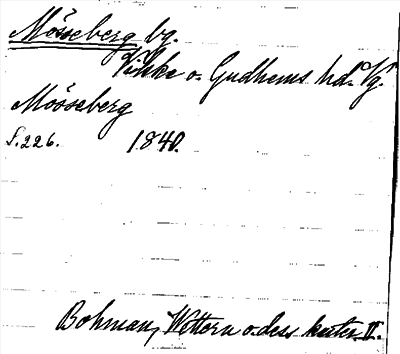 Mösseberg bg.
Vilske o. Gudhems hd. Vg.
Mösseberg
S. 226. 1840.
Bohman, Wettern o. dess kuster II.